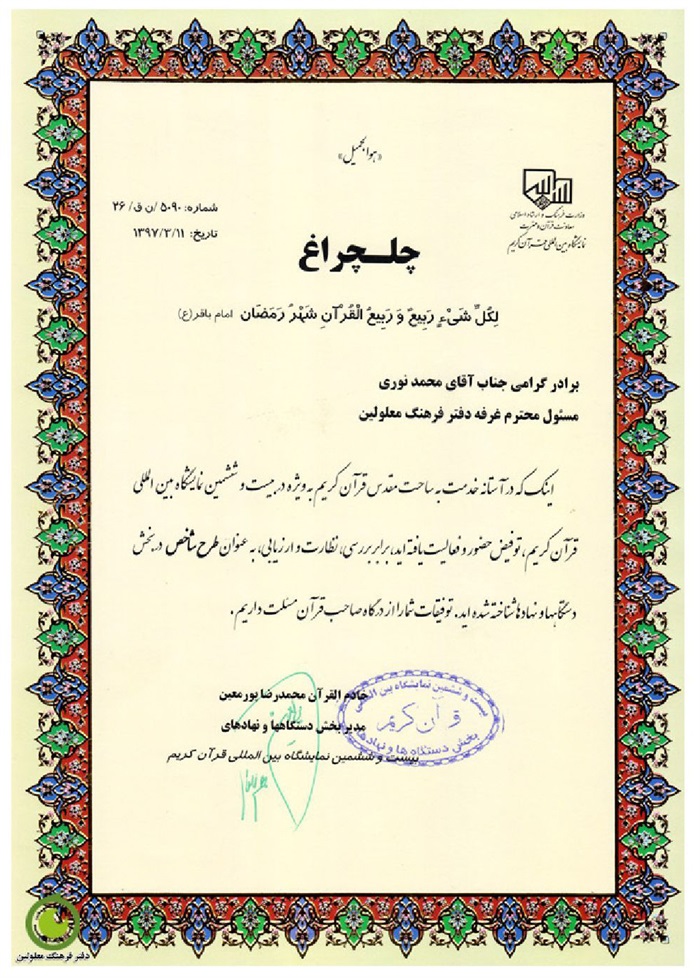 «هوا الجمیل»
وزارت فرهنگ و ارشاد اسلامی
معاونت قرآن و عترت
نمایشگاه بین المللی قرآن کریم
شماره: ۵۰۹۰ /ن ق/ ۲۶
تاریخ: ۱۳۹۷/۳/۱۱
چلــچراغ
لِکُلِّ شَیْءٍ رَبِیعٌ وَ رَبِیعُ الْقُرْآنِ شَهْرُ رَمَضَان امام باقر(ع)
برادر گرامی جناب آقای محمد نوری
مسئول محترم غرفه دفتر فرهنگ معلولین
اینک که در آستانه خدمت به ساحت مقدس قرآن کریم به ویژه در بیست و ششمین نمایشگاه بین المللی
قرآن کریم، توفیق حضور و فعالیت یافته اید، برابر بررسی، نظارت و ارزیابی، به عنوان طرح شاخص در بخش
دستگاهها و نهادها شناخته شده اید. توفیقات شما را از درگاه صاحب قرآن مسئلت داریم.
خادم القرآن محمدرضا پورمعین
مدیر بخش دستگاهها و نهادهای
بیست و ششمین نمایشگاه بین المللی قرآن کریم
بیست و ششمین نمایشگاه بین المللی
قرآن کریم
بخش دستگاه ها و نهادها
دفتر فرهنگ معلولین